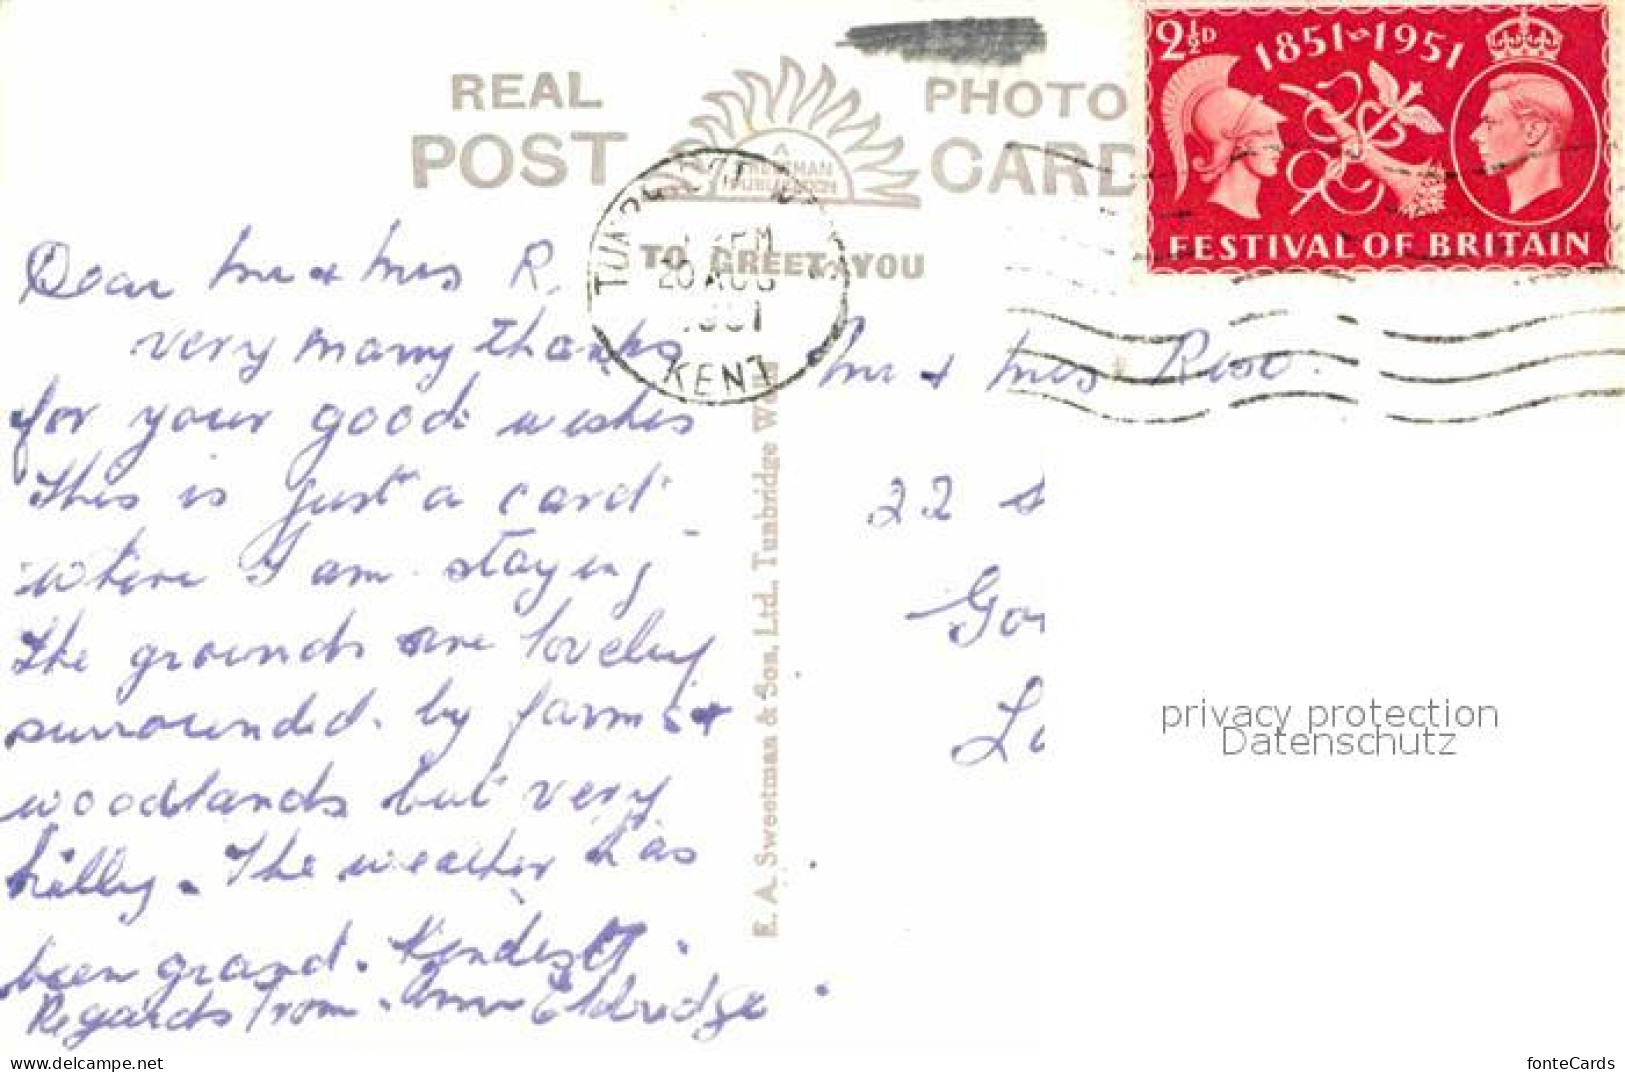 REAL PHOTO
POST CARD
A SWEETMAN PUBLICATION
TO GREET YOU
2½D 1851 1951
FESTIVAL OF BRITAIN
PM
20 AUG
1951
KENT
Dear Mr & Mrs R.
very many thanks
for your good wishes
This is just a card
where I am staying
The grounds are lovely
surrounded by farms &
woodlands but very
hilly. The weather has
been grand. Kindest
Regards from Eldridge
E. A. Sweetman & Son, Ltd., Tunbridge Wells
Mr & Mrs
22
privacy protection
Datenschutz
fonteCards